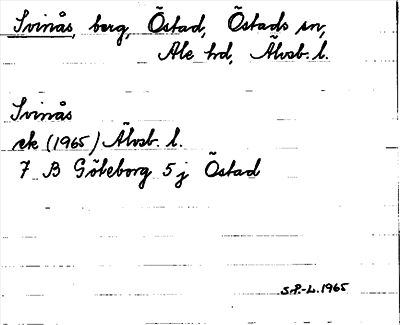 Svinås, berg, Östad, Östads sn,
Ale hd, Älvsb. l.
Svinås
ek (1965) Älvsb. l.
7 B Göteborg 5 j Östad
S.P.-L. 1965